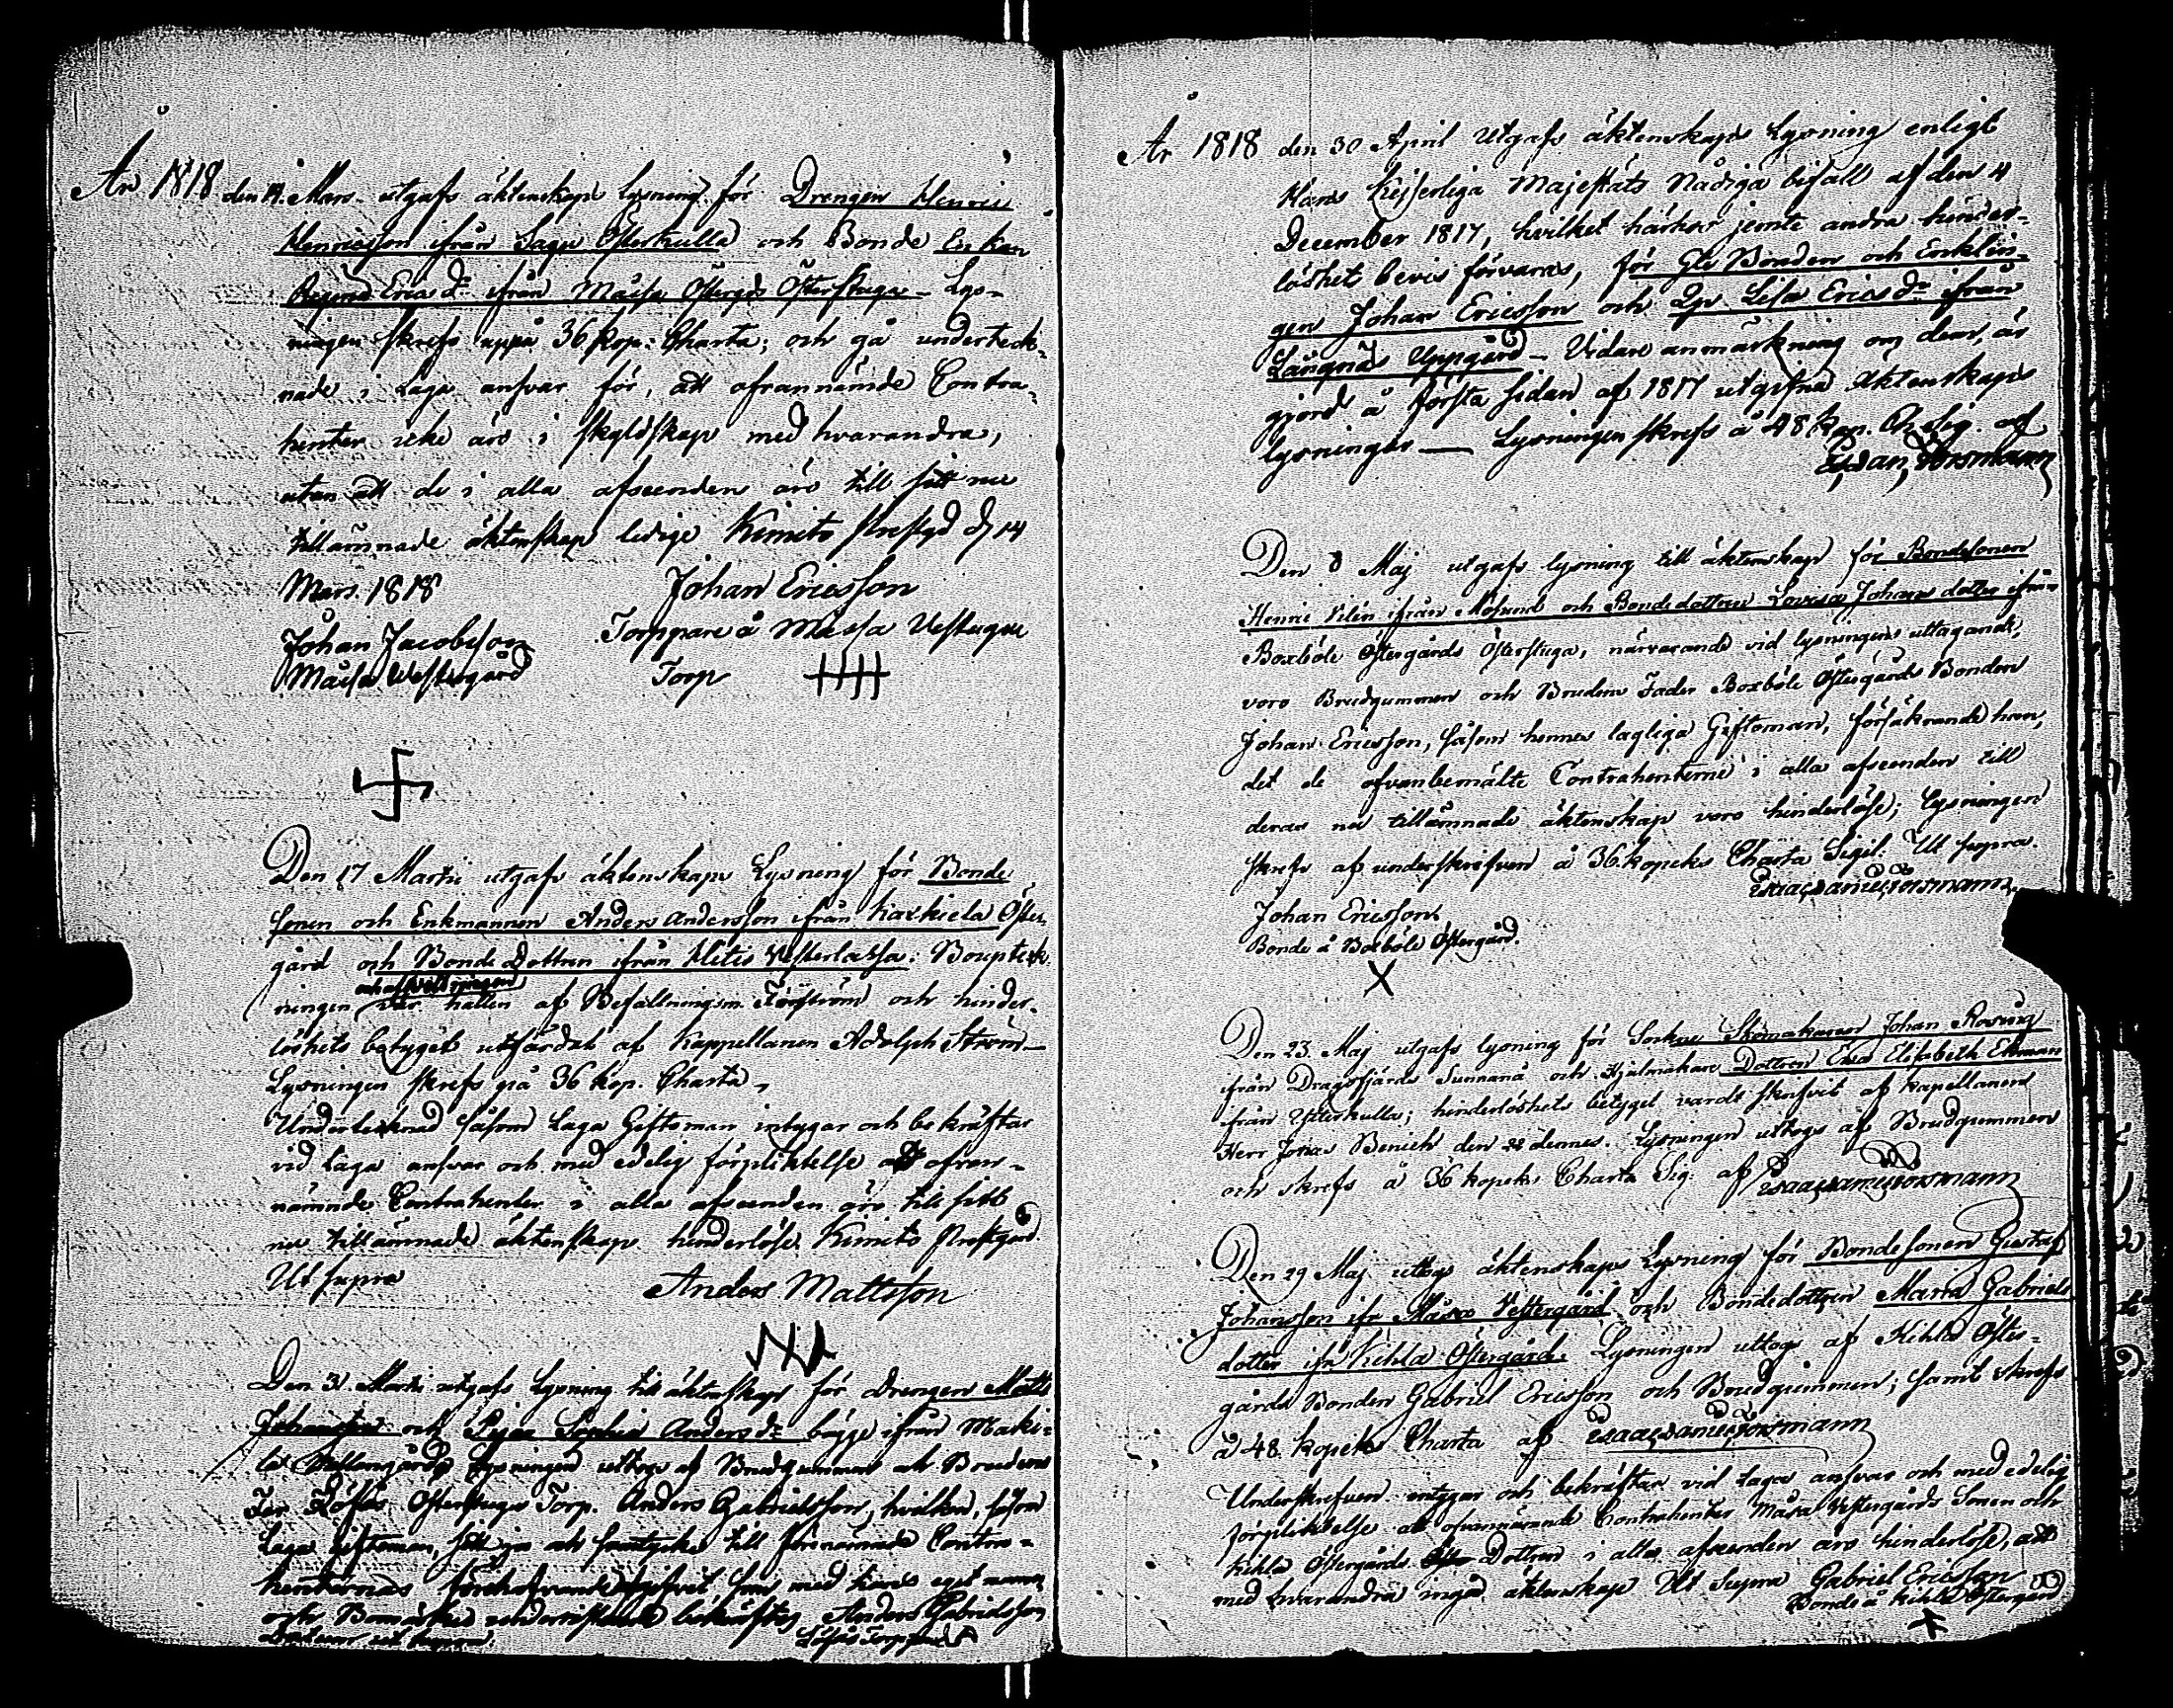 År 1818 den 14. Mars. utgafs äktenskaps lysning för Drengen Henric
Henricsson ifrån Sagu Österkulla och Bonde Enkan
Regina Erics dr ifrån Måisa Östergds Österstuga - Lys-
ningen skrefs uppå 36 kop: Charta; och gå underteck-
nade i Laga ansvar för, att ofvannämde Contra-
henter icke äro i skyldskap med hvarandra,
utan att de i alla afseenden äro till sitt nu
tillämnade äktenskap ledige Kimito Prestgd d 14
Mars. 1818
Johan Ericsson
Johan Jacobsson
Torppare å Måisa Vestergu
Måisa Westergård
Torp
Den 17 Martii utgafs äktenskaps Lysning för Bonde
sonen och Enkmannen Anders Andersson ifrån Öster-
gård och Bonde Dottren ifrån Hitis Vesterlaxa: Boupteck
ningen var hållen af Befallningsm. och hinder-
löshets betyget utfärdat af Kappellanen Adolph Ström-
Lysningen skrefs på 36 kop. Charta,
Undertecknad såsom Laga Giftoman intygar och bekräftar
vid Laga ansvar och med edelig förpliktelse att ofvan-
nämnde Contrahenter i alla afseenden äro till sitt
nu tillämnade äktenskap hinderlöse. Kimito Prestgård.
Ut supra
Anders Mattsson
Den 31. Martii utgafs Lysning till äktenskap för drengen Matts
Johansson och Pigan Sophia Anders dr bägge ifrån Maki-
la Mellangård Lysningen uttogs af Brudgummen och Brudens
Far Österstuga Torp. Anders Gabrielsson, hvilken, såsom
Laga giftoman, sitt ja och samtycke till förenämnde Contra-
henternas förehafvande gifvit som med hans eget namn
och Bomärke bekräftas Anders Gabrielsson
År 1818 den 30 April Utgafs äktenskaps Lysning enligt
Hans Kejserliga Majestäts Nådiga bifall af den 4
December 1817, hvilket härhos jemte andra hinder-
löshets bevis förvaras, för Gle Bonden och Encklin-
gen Johan Ericsson och Qv. Lisa Erics dr ifrån
Långnäs Uppgård - Vidare anmärkning om dem, är
gjord å första sidan af 1817 utgifna äktenskaps
lysningar — Lysningen skrefs å 48 kop. Ch. Sig. af
Forsmann
Den 8 Maj utgafs lysning till äktenskap för Bondesonen
Henric Vilén ifrån och Bondedottren Lovisa Johans dotter ifrån
Boxböle Östergårds Österstuga, närvarande vid lysningens uttagande,
voro Brudgummen och Brudens Fader Boxböle Östergårds Bonden
Johan Ericsson, såsom hennes lagliga Giftoman, försäkrande han,
det de ofvanbemälte Contrahenterne i alla afseenden till
deras nu tillämnade äktenskap voro hinderlöse; Lysningen
skrefs af underskrifven å 36. kopeks Charta Sigil. Ut supra.
Isaac Daniel Forsmann
Johan Ericsson
Bonde å Boxböle Östergård.
X
Den 23. Maj utgafs lysning för Sockne Skomakaren Johan Rosing
ifrån Dragsfjärds Sunnanå och Hjulmakare Dottren Eva Elisabeth Ekman
ifrån Ytterkulla; hinderlöshets betyget vardt skrifvit af kapellanen
Herr Jonas Benich den 22 dennes. Lysningen uttogs af Brudgummen
och skrefs å 36 kopeks Charta Sig. af Isaac Daniel Forsmann
Den 29 Maj uttogs äktenskaps Lysning för Bondesonen Gustaf
Johansson ifr Måsa Vestergård och Bondedottren Maria Gabriels
dotter ifr Kihla Östergård. Lysningen uttogs af Kihla Öster-
gårds Bonden Gabriel Ericsson och Brudgummen; samt skrefs
å 48 kopeks Charta af Isaac Daniel Forsmann
Underskrefven intygar och bekräftar vid Laga ansvar och med edelig
förpliktelse att ofvannämnde Contrahenter Måsa Vestergårds Sonen och
Kihla Östergårds Dottren i alla afseenden äro hinderlöse, att
med hvarandra ingå äktenskap Ut Supra Gabriel Ericsson
Bonde å Kihla Östergård